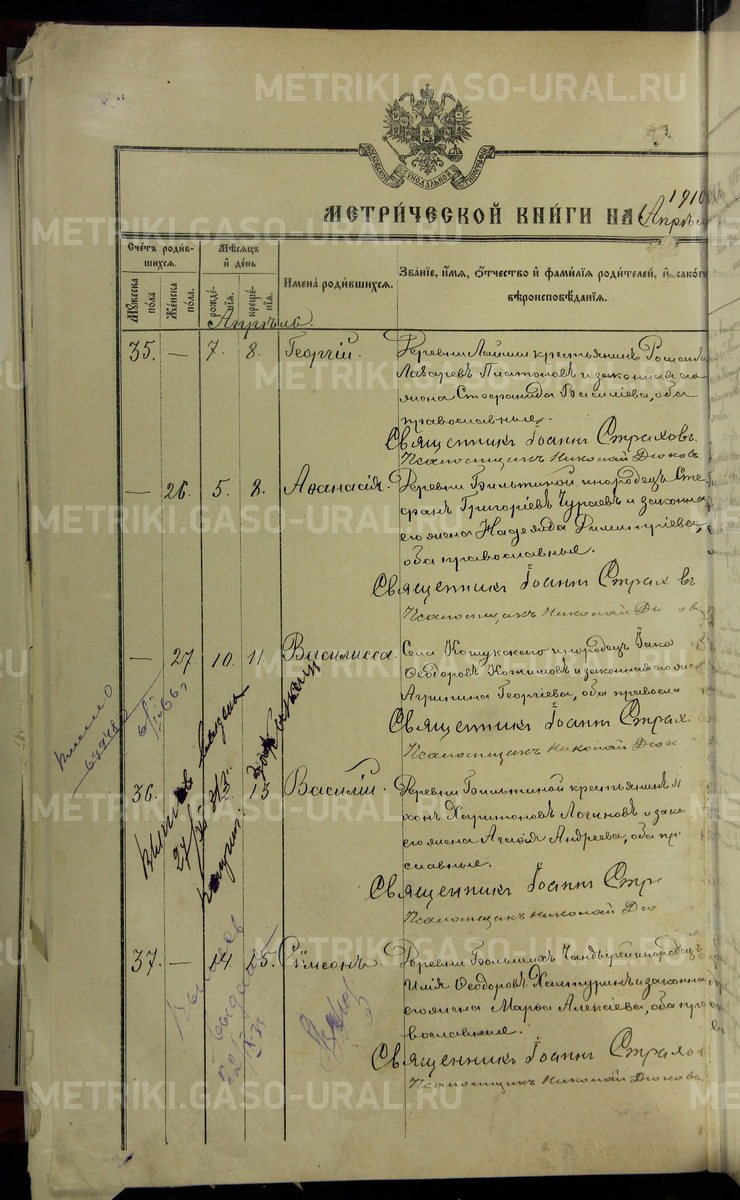 METRIKI.GASO-URAL.RU
МОСКОВСКОЙ СѴНОДАЛЬНОЙ ТИПОГРАФІИ
МЕТРИ́ЧЕСКОЙ КНИ́ГИ НА 1910
Апрѣль
Сче́тъ роди́в-
шихсѧ.
Мѣ́сѧцъ
и҆ де́нь
Мꙋ́жеска по́ла
Же́нска по́ла.
рожде́-нїѧ.
креще́-нїѧ.
И҆мена̀ роди́вшихсѧ.
Зва́нїе, и҆́мѧ, ѻ҆́тчество и҆ фами́лїѧ роди́телей, и҆ како́гѡ
вѣроисповѣ́данїѧ.
Апрѣль.
35. — 7. 8. Георгій. Деревни Лайшы крестьянинъ Романъ
Лазаревъ Платоновъ и законная его
жена Стефанида Василіева, оба
православные.
Священникъ Іоаннъ Страховъ.
Псаломщикъ Николай Дюковъ
— 26. 5. 8. Аѳанасія. Деревни Бильтиной инородецъ Сте-
фанъ Григоріевъ Чураевъ и законная
его жена Надежда Димитріева,
оба православные.
Священникъ Іоаннъ Страх въ
Псаломщикъ Николай Дю овъ
— 27 10. 11. Василисса. Села Кошукскаго инородецъ Іако
Ѳеодоровъ и законная его же
Агрипина Георгіева, оба правосла
Священникъ Іоаннъ Страх
Псаломщикъ Николай Дюк
36. 13 Василій. Деревни Бильтиной крестьянинъ
Харитоновъ Логиновъ и зако
его жена Агаѳія Андреева, оба пр
славные.
Священникъ Іоаннъ Стр
Псаломщикъ Николай Дю
37. — 14. 15. Сѵмеонъ. Деревни Большихъ инородецъ
Илія Ѳеодоровъ Хаптуринъ и законна
его жена Марѳа Алексіева, оба пра
вославные.
Священникъ Іоаннъ Страхов
Псаломщикъ Николай Дюковъ.